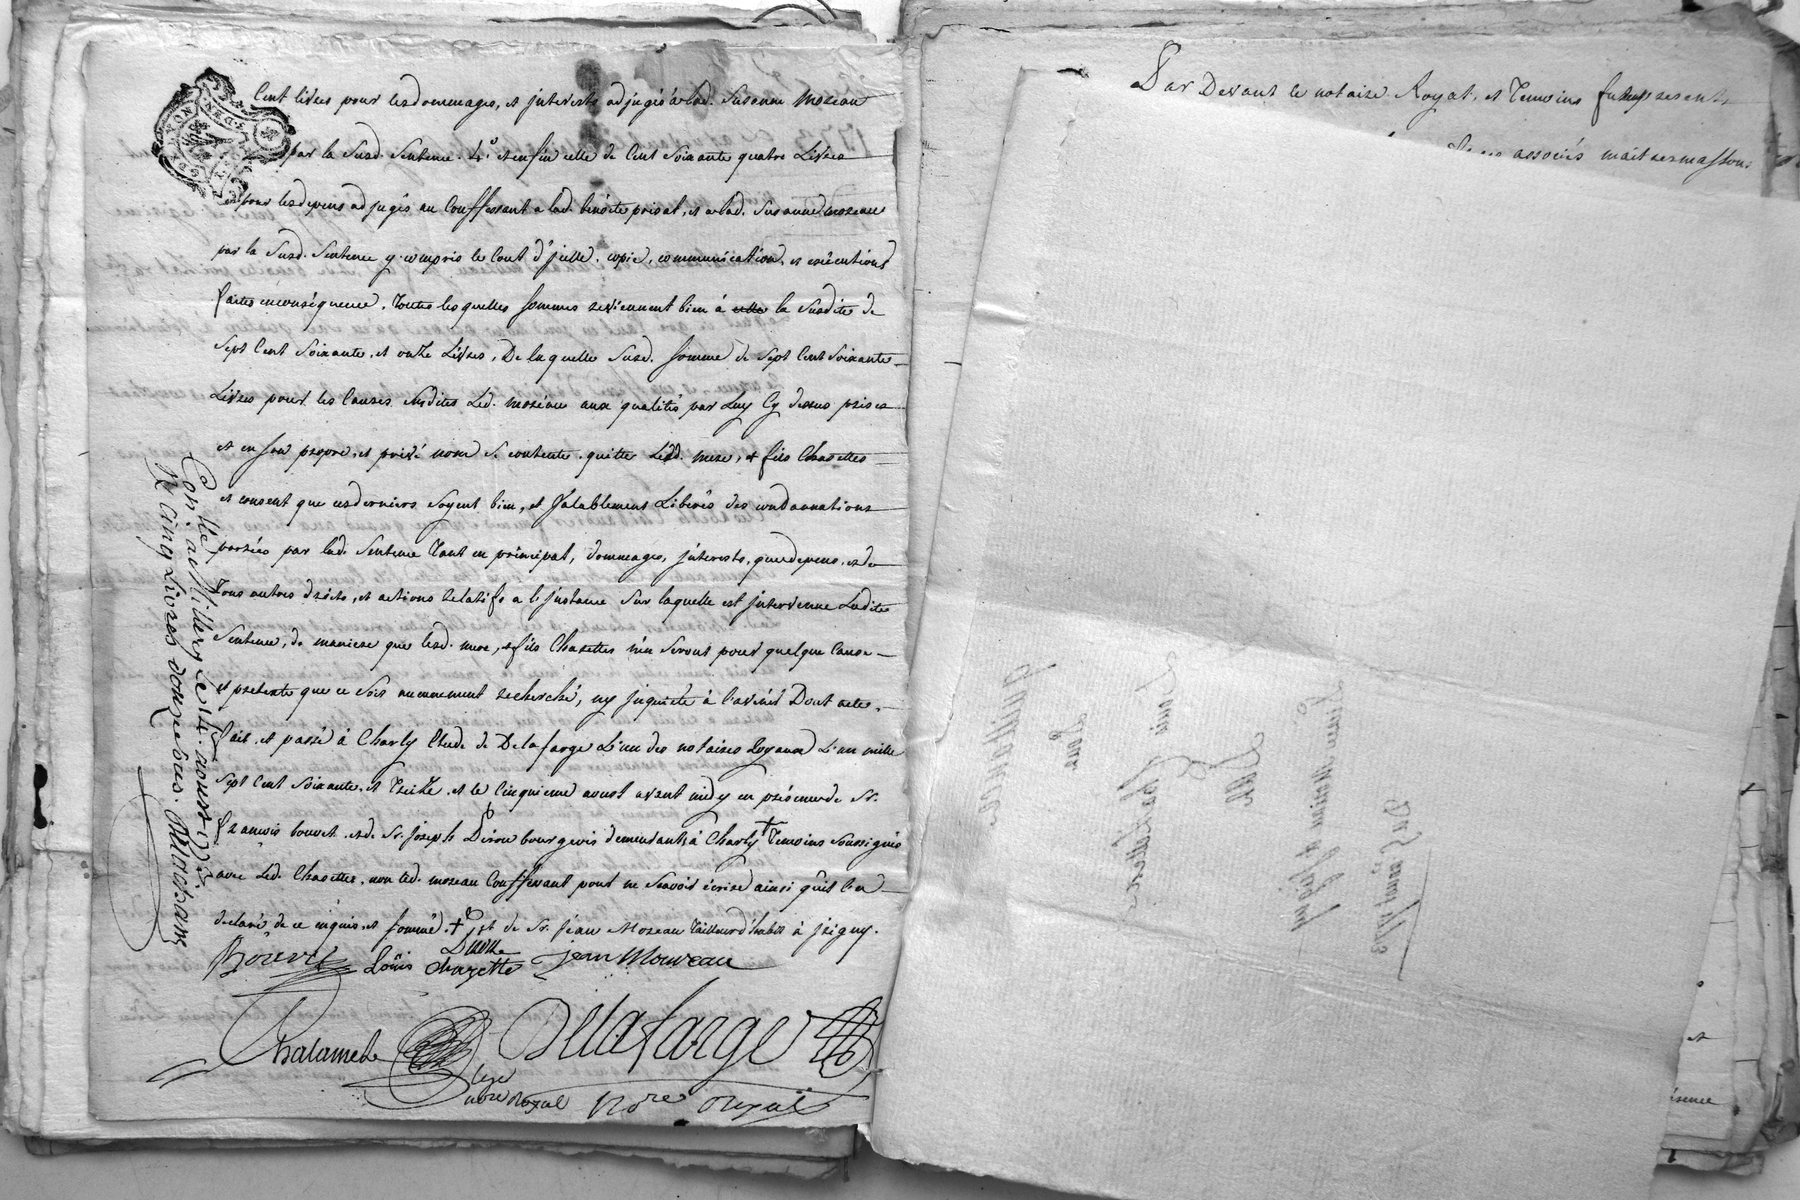 Cent livres pour lesdommages, et jnterests adjugés a lad. Susanne Mozeau
par la Susd. Sentence. 4.° et enfin celle de Cent Soixante quatre Livres
pour lesdepens adjugés au Conffessant a lad. benoite et a lad. Susanne mozeau
par la Susd. Sentence y compris le Cout d'jcelle, copie, communication, et exécutions
faites enconséquence, Toutes lesquelles sommes reviennent bien à la Susdite de
Sept Cent Soixante, et onze Livres, De laquelle Susd. somme de Sept Cent Soixante
Livres pour les Causes Susdites Led. Mozeau aux qualités par Luy Cy dessus prises
et en son propre, et privé nom se contente, quitte Lesd. mere, et fils Chazettes
et consent que cesderniers Soyent bien, et Valablement Liberés des condamnations
portées par lad. Sentence Tant en principal, dommages, jnterests, quedepens, et de
Tous autres droits, et actions relatifs a l'jnstance Sur laquelle est jntervenue Ladite
Sentence, de maniere que lesd. mere, et fils Chazettes n'en Seront pour quelque Cause
et pretexte que ce Soit aucunement recherché, ny jnquieté à l'avenir Dont acte
fait, et passé à Charly Etude de Delafarge L'un des notaires Royaux L'an mille
Sept Cent Soixante, et Treize, et le Cinquieme aoust avant midy en présence de Sr.
françois bouvet, et de Sr. joseph bourgeois demeurants à Charly + Temoins Soussignés
avec Led. Chazettes, non led. mozeau Conffessant pour ne Scavoir écrire ainsi qu'il l'a
declaré de ce enquis, et sommé. + et de Sr. jean Mozeau Tailleur d'habits à jrigny.
Bouvet Louis chazette jean Mouveau
Chalamel Delafarge
Nore royal
Con.lé a Millery le 14. aoust 1773
R cinq Livres douze sous.
Par Devant le notaire Royal, et Temoins furent presents
associés maitres massons
Quittance
Pour
Louis Chazettes
Du 5 aoust
1773